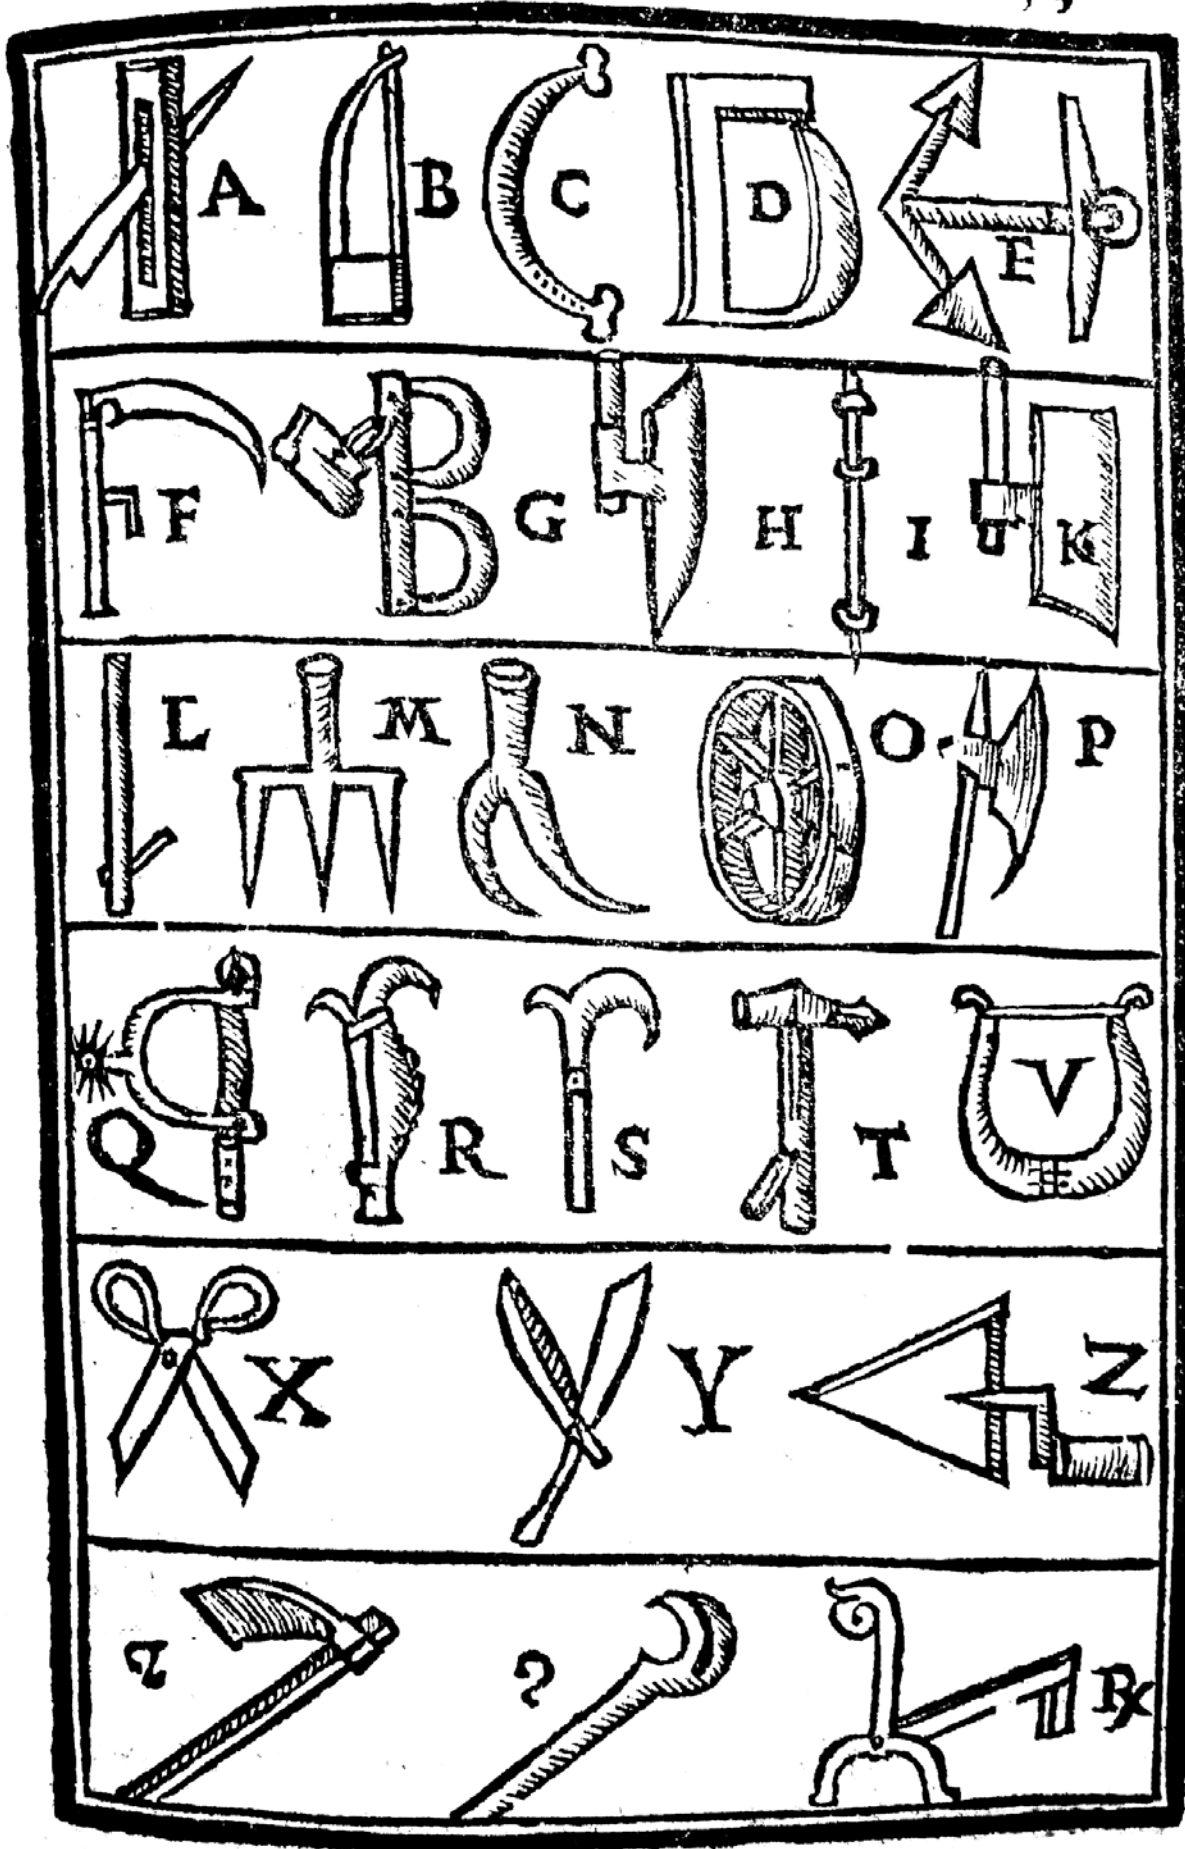 A B C D E
F G H I K
L M N O P
Q R S T V
X Y Z
℞